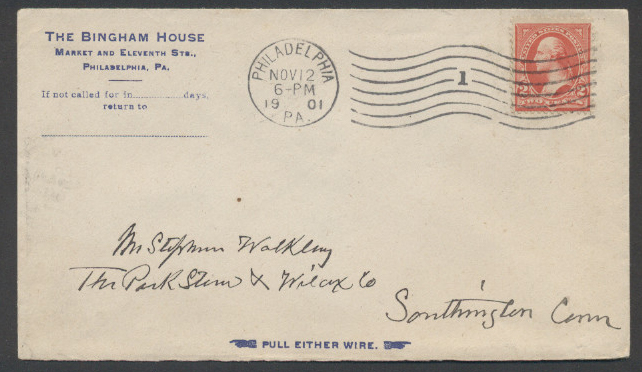 THE BINGHAM HOUSE
MARKET AND ELEVENTH STS.,
PHILADELPHIA, PA.
If not called for in................days,
return to
PHILADELPHIA
NOV 12
6-PM
19 01
PA.
1
2 2
Mr Stephen Walkley
The Peck Stow & Wilcox Co
Southington Conn
PULL EITHER WIRE.